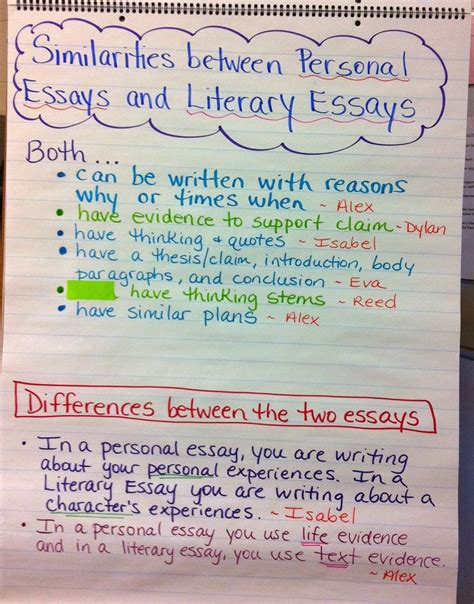 Similarities between Personal
Essays and Literary Essays
Both ...
• can be written with reasons
why or times when ~ Alex
• have evidence to support claim - Dylan
• have thinking & quotes ~ Isabel
• have a thesis/claim, introduction, body
paragraphs, and conclusion - Eva
• have thinking stems - Reed
• have similar plans ~ Alex
Differences between the two essays
• In a personal essay, you are writing
about your personal experiences. In a
Literary Essay you are writing about a
character's experiences. ~ Isabel
• In a personal essay you use life evidence
and in a literary essay, you use text evidence.
~ Alex